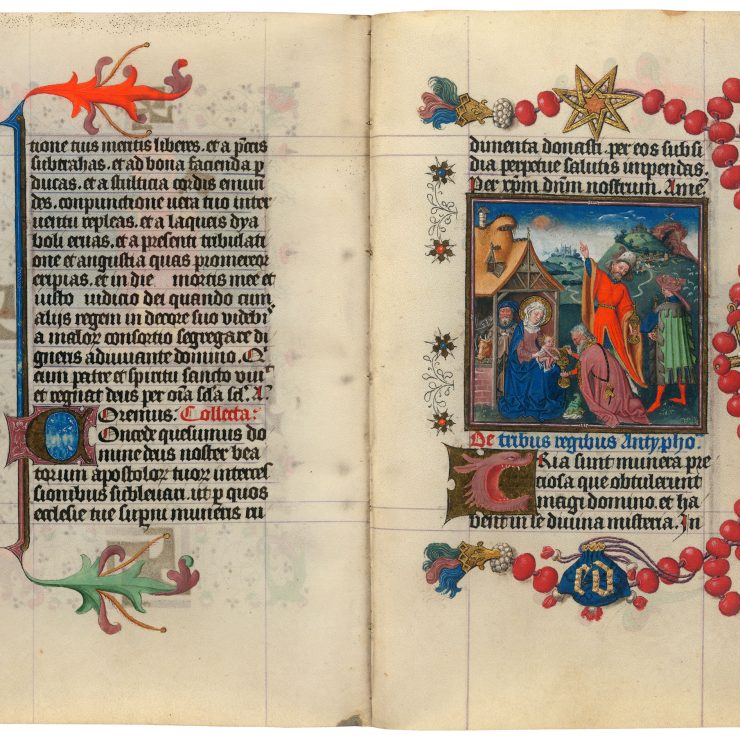 tione tuis meritis liberes. et a pctis
subtrahas. et ad bona facienda p
ducas. et a stulticia cordis emun
des. conpunctione vera tuo inter
uentu repleas. et a laqueis dya
boli eruas. et a presenti tribulati
one et angustia quas promereor
eripias. et in die mortis mee et
iusto iudicio dei quando cum
alijs regem in decore suo videbi
a malor consortio segregare di
gneris adiuuante domino. Q
cum patre et spiritu sancto viui
et regnat deus per oia scla scl. A
Oremus: Collecta:
Concede quesumus do
mine deus noster bea
torium apostolor tuor interces
sionibus subleuari. ut p quos
ecclesie tue supni muneris ru
dimenta donasti. per eos subsi
dia perpetue salutis impendas.
Per xpm dnm nostrum. Ame
De tribus regibus Antypho:
Tria sunt munera pre
ciosa que obtulerunt
magi domino. et ha
bent in se diuina misteria. In
ed